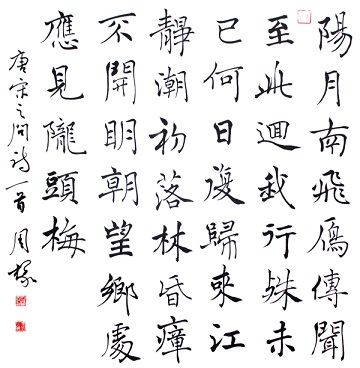 陽月南飛鴈傳聞
至此迴我行殊未
已何日復歸來江
靜潮初落林昏瘴
不開明朝望鄉處
應見隴頭梅
唐宋之問詩一首周